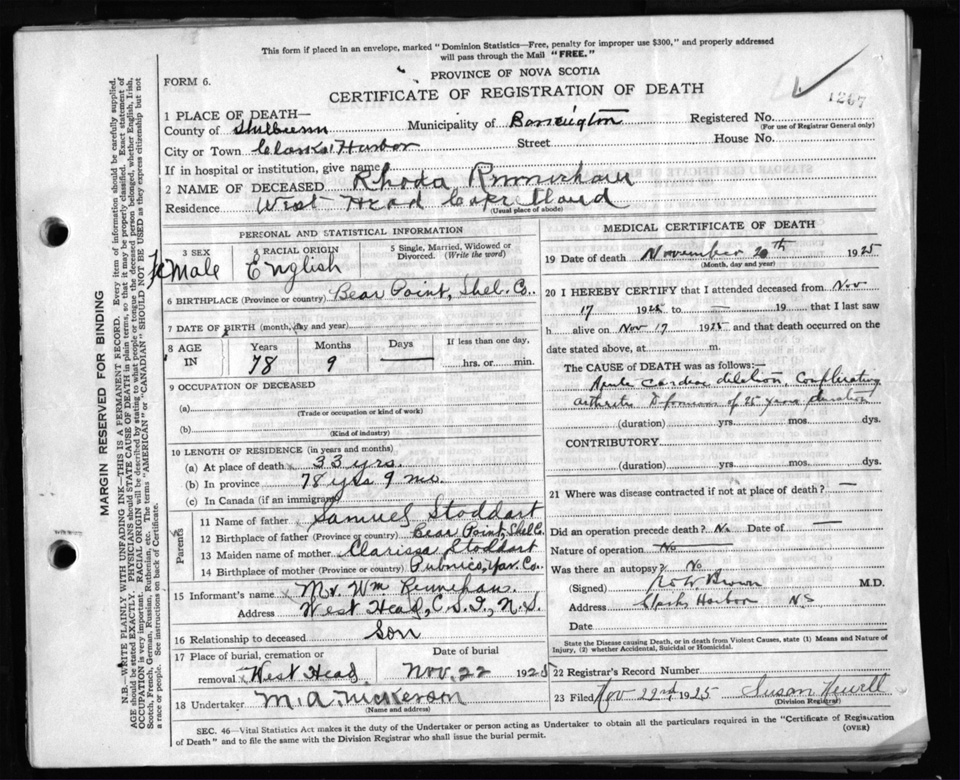 This form if placed in an envelope, marked "Dominion Statistics—Free, penalty for improper use $300," and properly addressed
will pass through the Mail "FREE."
FORM 6.
PROVINCE OF NOVA SCOTIA
CERTIFICATE OF REGISTRATION OF DEATH
1267
1 PLACE OF DEATH—
County of Municipality of Barrington Registered No.
(For use of Registrar General only)
City or Town Clarks Harbor Street House No.
If in hospital or institution, give name
2 NAME OF DECEASED Rhoda
Residence West Head Cape Island
(Usual place of abode)
PERSONAL AND STATISTICAL INFORMATION
3 SEX 4 RACIAL ORIGIN 5 Single, Married, Widowed or
Divorced. (Write the word)
FeMale English
6 BIRTHPLACE (Province or country) Bear Point, Shel. Co.
7 DATE OF BIRTH (month, day and year)
8 AGE IN Years Months Days If less than one day,
78 9 — hrs. or min.
9 OCCUPATION OF DECEASED
(a)
(Trade or occupation or kind of work)
(b)
(Kind of industry)
10 LENGTH OF RESIDENCE (in years and months)
(a) At place of death 33 yrs.
(b) In province 78 yrs 9 mo.
(c) In Canada (if an immigrant)
Parents
11 Name of father Samuel Stoddart
12 Birthplace of father (Province or country) Bear Point, Shel Co.
13 Maiden name of mother Clarissa Stoddart
14 Birthplace of mother (Province or country) Pubnico, Yar. Co.
15 Informant's name Mr. Wm
Address West Head, C. S. I., N. S.
16 Relationship to deceased Son
17 Place of burial, cremation or Date of burial
removal West Head Nov. 22 1925
18 Undertaker M. A. Nickerson
(Name and address)
MEDICAL CERTIFICATE OF DEATH
19 Date of death November 20th 1925
(Month, day and year)
20 I HEREBY CERTIFY that I attended deceased from Nov
17 1925 to — 19 that I last saw
h alive on Nov 17 1925 and that death occurred on the
date stated above, at m.
The CAUSE OF DEATH was as follows:
Acute cardiac dilation, Complicating
arthritis Deformans of 25 years duration
(duration) yrs. mos. dys.
CONTRIBUTORY
(duration) yrs. mos. dys.
21 Where was disease contracted if not at place of death? —
Did an operation precede death? No Date of —
Nature of operation No
Was there an autopsy? No
(Signed) Brown M.D.
Address Clarks Harbor N S
Date
State the Disease causing Death, or in death from Violent Causes, state (1) Means and Nature of
Injury, (2) whether Accidental, Suicidal or Homicidal.
22 Registrar's Record Number
23 Filed Nov 22nd 1925 Susan Newell
(Division Registrar)
SEC. 46—Vital Statistics Act makes it the duty of the Undertaker or person acting as Undertaker to obtain all the particulars required in the "Certificate of Registration
of Death" and to file the same with the Division Registrar who shall issue the burial permit.
(OVER)
MARGIN RESERVED FOR BINDING
N.B.—WRITE PLAINLY WITH UNFADING INK—THIS IS A PERMANENT RECORD. Every item of information should be carefully supplied.
AGE should be stated EXACTLY. PHYSICIANS should STATE CAUSE OF DEATH in plain terms, so that it may be properly classified. Exact statement of
OCCUPATION is very important. RACIAL ORIGIN will be described by stating to what people or tongue the deceased person belonged, whether English, Irish,
Scotch, French, German, Russian, Ruthenian, etc. The terms "AMERICAN" or "CANADIAN" SHOULD NOT BE USED as they express citizenship but not
a race or people. See instructions on back of Certificate.